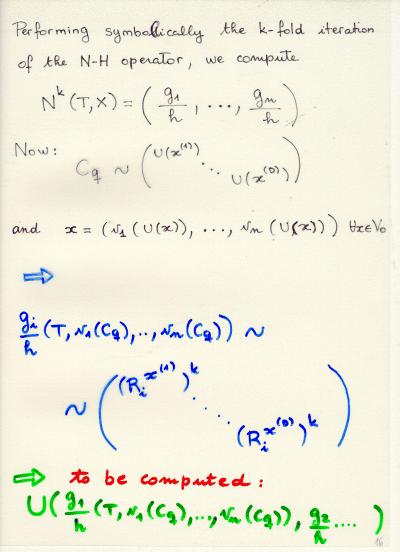 Performing symbolically the k-fold iteration
of the N-H operator, we compute
N^k (T, X) = ( g_1/h , ..., g_n/h )
Now:
C_q ~ ( U(x^(1)) ⋱ U(x^(D)) )
and x = (v_1 (U(x)), ..., v_n (U(x))) ∀x∈V_0
⇒
g_i/h (T, v_1(C_q), .., v_n(C_q)) ~
~ ( (R_i^{x^(1)})^k ⋱ (R_i^{x^(D)})^k )
⇒ to be computed :
U( g_1/h (T, v_1(C_q), ..., v_n(C_q)), g_2/h .... )
16